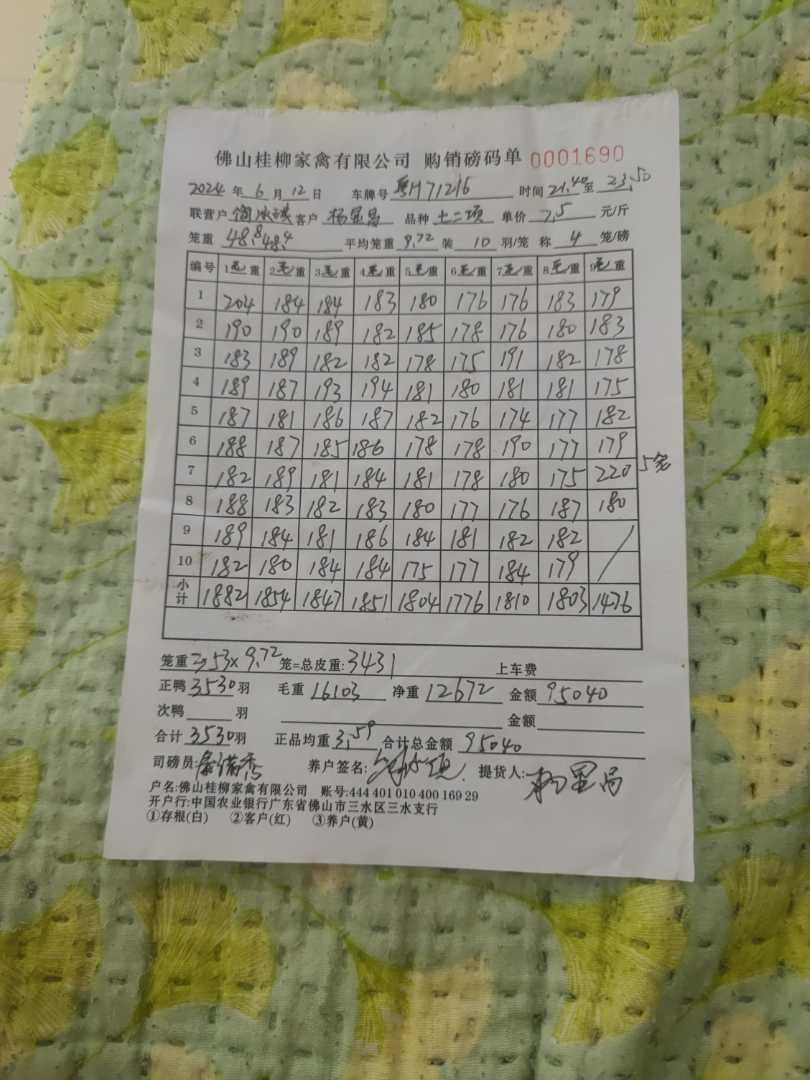 佛山桂柳家禽有限公司 购销磅码单 0001690
2024 年 6 月 12 日 车牌号 粤H71216 时间 21.40 至 23.50
联营户 客户 杨星局 品种 土二项 单价 7.5 元/斤
笼重 48.8 48.4 平均笼重 9.72 装 10 羽/笼 称 4 笼/磅
编号 1毛重 2毛重 3毛重 4毛重 5毛重 6毛重 7毛重 8毛重 9毛重
1 204 184 184 183 180 176 176 183 179
2 190 190 189 182 185 178 176 180 183
3 183 189 182 182 178 175 191 182 178
4 189 187 193 194 181 180 181 181 175
5 187 181 186 187 182 176 174 177 182
6 188 187 185 186 178 178 190 177 179
7 182 189 181 184 181 178 180 175 220 5笼
8 188 183 182 183 180 177 176 187 180
9 189 184 181 186 184 181 182 182 /
10 182 180 184 184 175 177 184 179 /
小计 1882 1854 1847 1851 1804 1776 1810 1803 1476
笼重 353×9.72 笼=总皮重: 3431 上车费
正鸭 3530 羽 毛重 16103 净重 12672 金额 95040
次鸭 羽 金额
合计 3530 羽 正品均重 3.59 合计总金额 95040
司磅员: 养户签名: 提货人: 杨星局
户名:佛山桂柳家禽有限公司 账号:444 401 010 400 169 29
开户行:中国农业银行广东省佛山市三水区三水支行
①存根(白) ②客户(红) ③养户(黄)